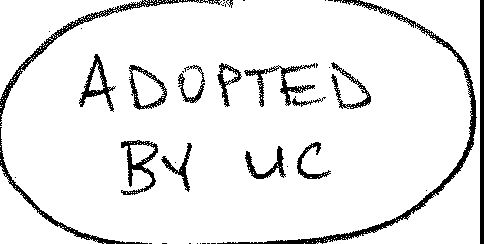 ADOPTED
BY UC